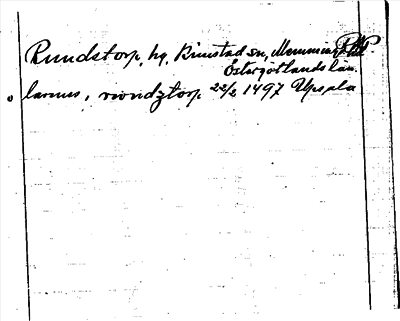 Rundstorp, hg, Rinstad sn, Memmings
Östergötlands län.
larens, rwndztorp 22/2 1497 Upsala